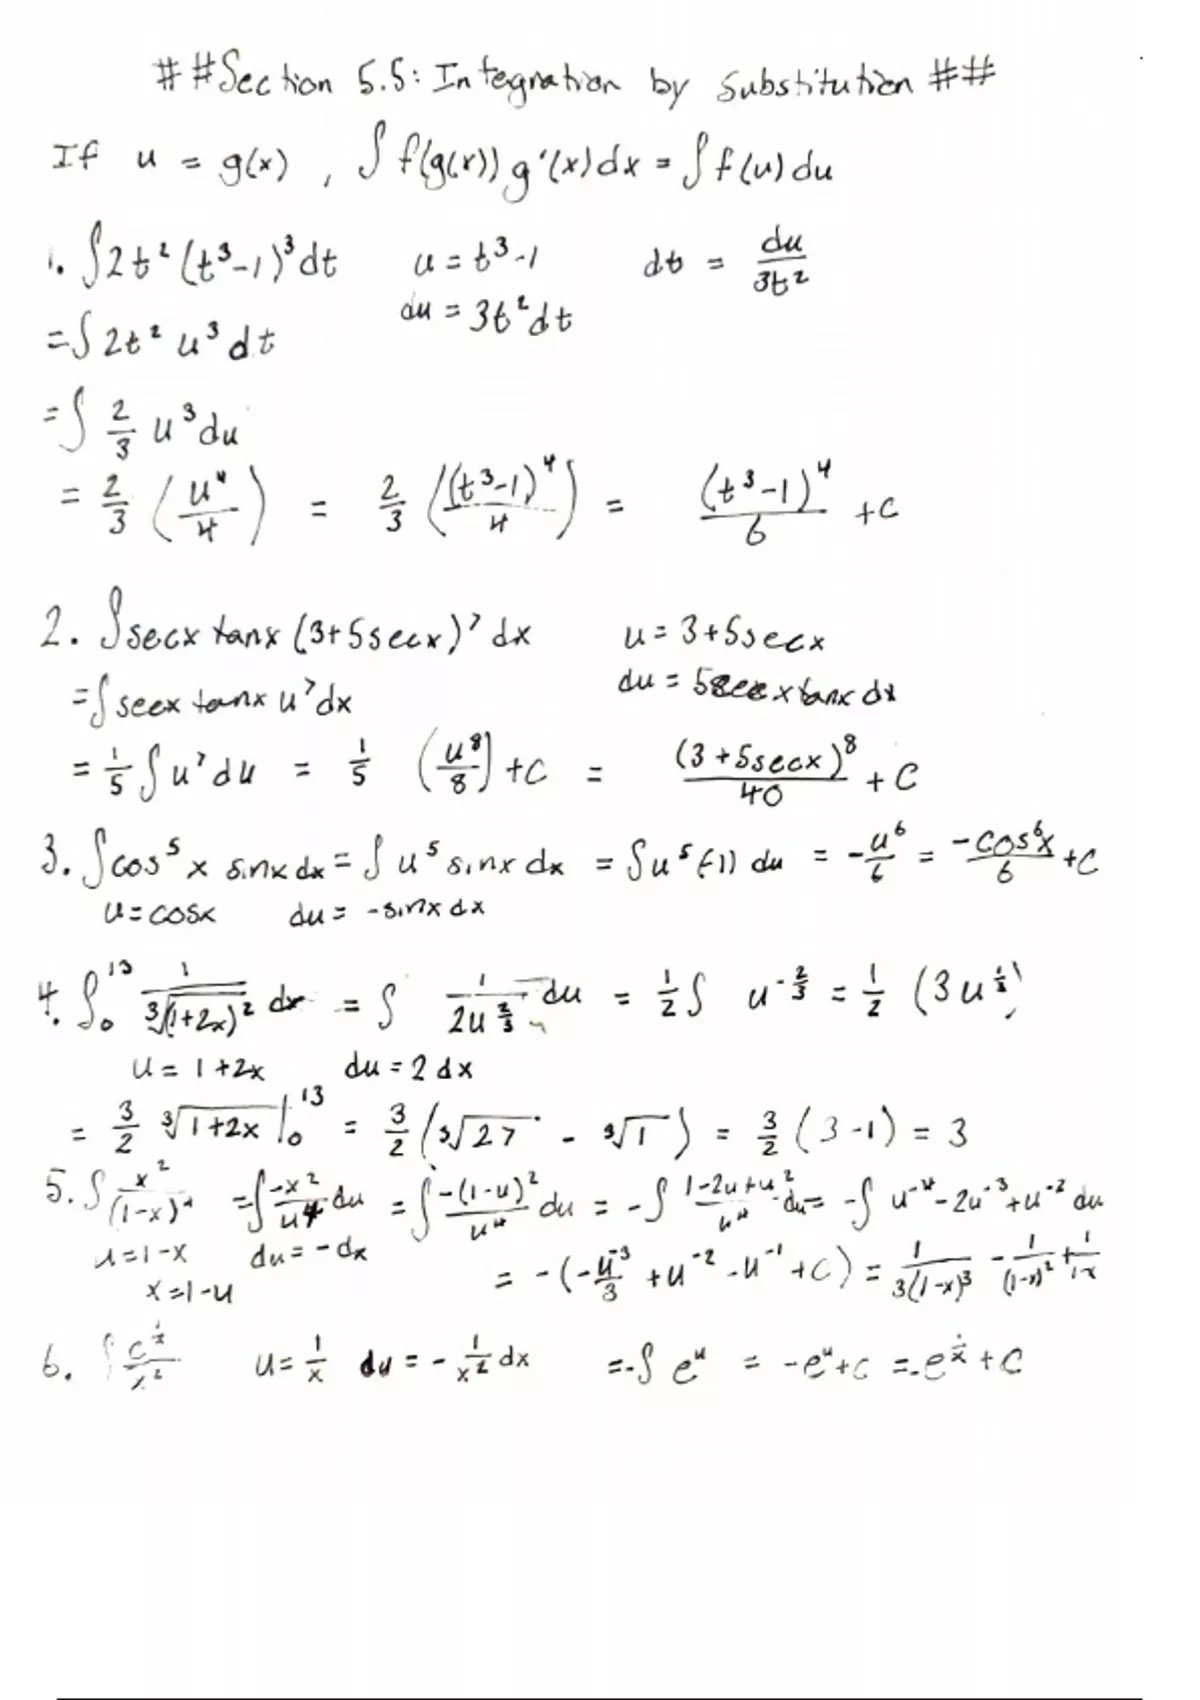 ##Section 5.5: Integration by Substitution ##
If u = g(x), ∫ f(g(x)) g'(x) dx = ∫ f(u) du
1. ∫ 2t² (t³-1)³ dt   u = t³-1   dt = du/3t²
= ∫ 2t² u³ dt   du = 3t² dt
= ∫ 2/3 u³ du
= 2/3 (u⁴/4) = 2/3 ((t³-1)⁴/4) = (t³-1)⁴/6 + C
2. ∫ secx tanx (3+5secx)⁷ dx   u = 3+5secx
= ∫ secx tanx u⁷ dx   du = 5secx tanx dx
= 1/5 ∫ u⁷ du = 1/5 (u⁸/8) + C = (3+5secx)⁸/40 + C
3. ∫ cos⁵x sinx dx = ∫ u⁵ sinx dx = ∫ u⁵ (-1) du = -u⁶/6 = -cos⁶x/6 + C
u = cosx   du = -sinx dx
4. ∫₀¹³ 1/∛(1+2x)² dx = ∫ 1/2u^(2/3) du = 1/2 ∫ u^(-2/3) = 1/2 (3u^(1/3))
u = 1+2x   du = 2dx
= 3/2 ∛1+2x |₀¹³ = 3/2 (∛27 - ∛1) = 3/2 (3-1) = 3
5. ∫ x²/(1-x)⁴ = ∫ -x²/u⁴ du = ∫ -(1-u)²/u⁴ du = -∫ 1-2u+u²/u⁴ du = -∫ u⁻⁴ - 2u⁻³ + u⁻² du
u = 1-x   du = -dx
x = 1-u   = -(-u⁻³/3 + u⁻² - u⁻¹ + C) = 1/3(1-x)³ - 1/(1-x)² + 1/1-x
6. ∫ e^(1/x)/x²   u = 1/x   du = -1/x² dx   = -∫ e^u = -e^u + C = -e^(1/x) + C